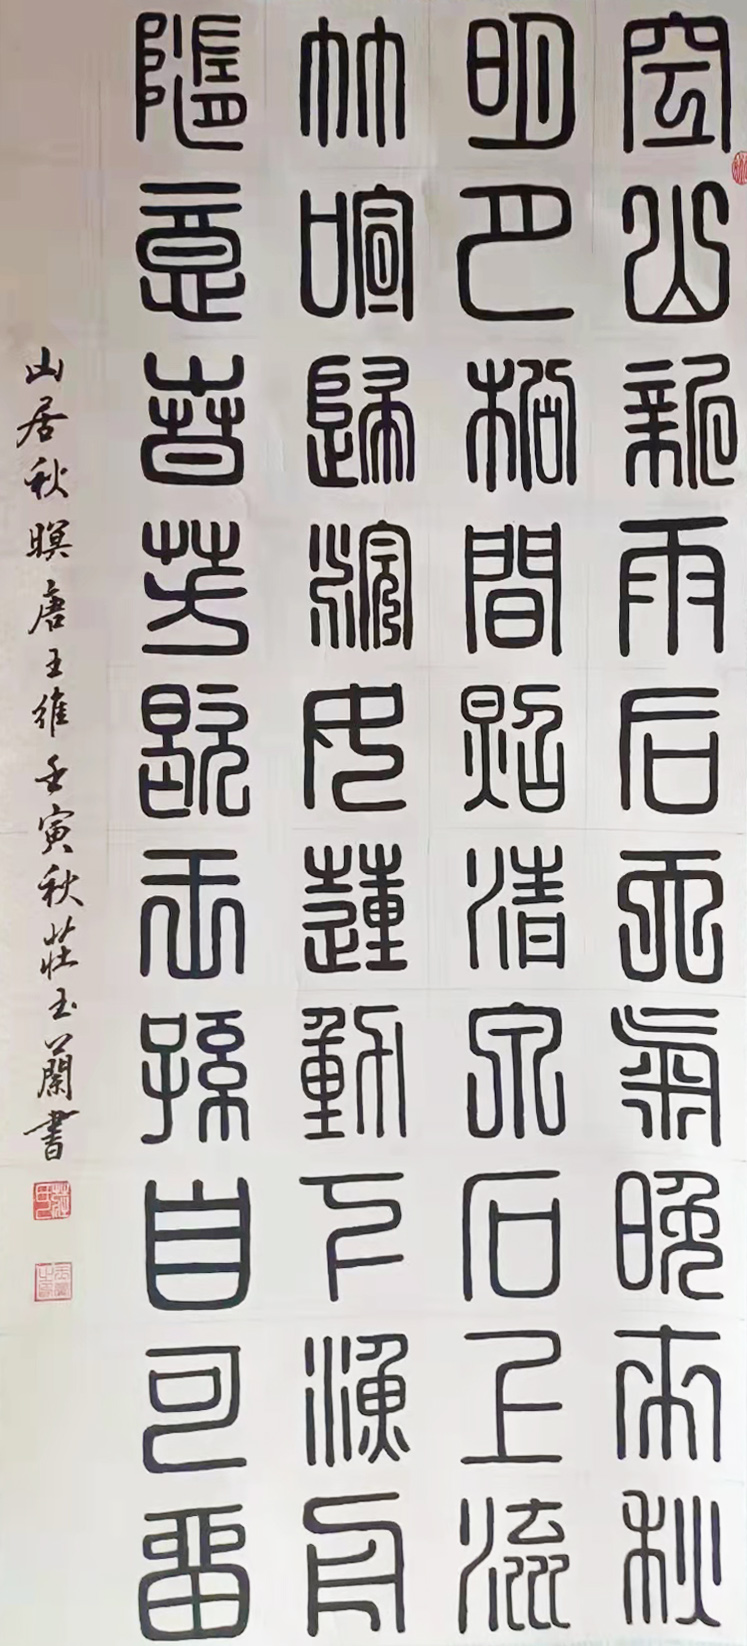 空山新雨后天氣晚來秋
明月松間照清泉石上流
竹喧歸浣女蓮動下漁舟
隨意春芳歇王孫自可留
山居秋暝唐王維壬寅秋莊玉蘭書